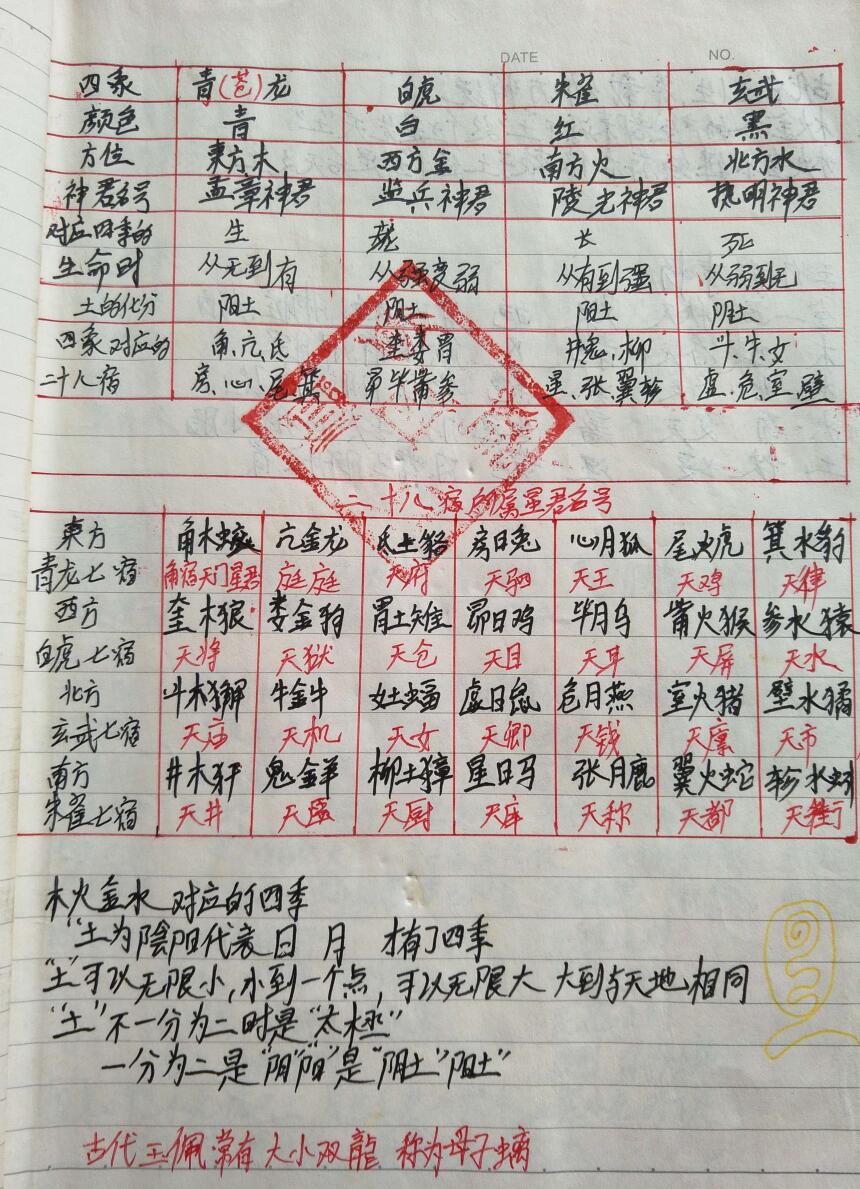 DATE NO.
四象 青(苍)龙 白虎 朱雀 玄武
颜色 青 白 红 黑
方位 東方木 西方金 南方火 北方水
神君名号 孟章神君 监兵神君 陵光神君 执明神君
对应四季的 生 长 死
生命时 从无到有 从强变弱 从有到强 从弱到无
土的化分 阳土 阴土 阳土 阴土
四象对应的 角、亢、氐 奎娄胃 井鬼、柳 斗、牛、女
二十八宿 房、心、尾、箕 昴毕觜参 星、张、翼轸 虚、危、室、壁
二十八宿的属星君名号
東方 角木蛟 亢金龙 氐土貉 房日兔 心月狐 尾火虎 箕水豹
青龙七宿 角宿天门星君 庭庭 天府 天驷 天王 天鸡 天律
西方 奎木狼 娄金狗 胃土雉 昴日鸡 毕月乌 觜火猴 参水猿
白虎七宿 天将 天狱 天仓 天目 天耳 天屏 天水
北方 斗木獬 牛金牛 女土蝠 虚日鼠 危月燕 室火猪 壁水㺄
玄武七宿 天庙 天机 天女 天卿 天钱 天廪 天市
南方 井木犴 鬼金羊 柳土獐 星日马 张月鹿 翼火蛇 轸水蚓
朱雀七宿 天井 天厨 天库 天称 天都
木火金水 对应的四季
“土为陰阳代表日 月 才有了四季
“土”可以无限小,小到一个点,可以无限大 大到与天地相同
“土”不一分为二时是“太极”
一分为二是“阴”“阳”是“阴土”“阳土”
古代玉佩常有大小双龍 称为母子螭